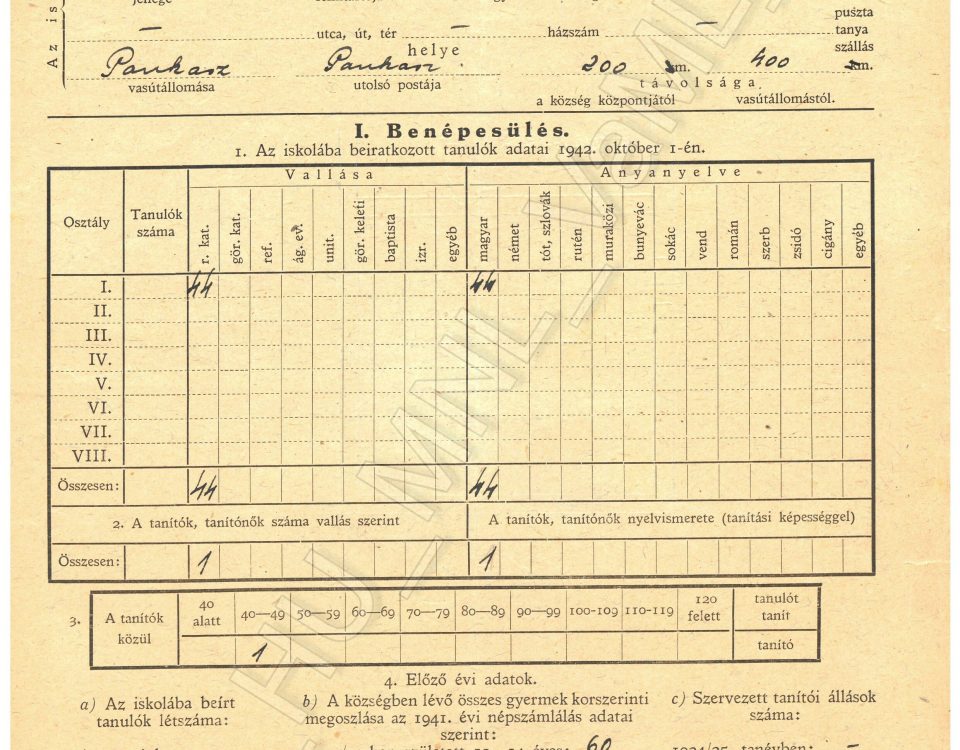 puszta
utca, út, tér — házszám — tanya
helye szállás
Pankasz Pankasz. 200 km. 400 km.
vasútállomása utolsó postája távolsága
a község központjától vasútállomástól.
I. Benépesülés.
1. Az iskolába beiratkozott tanulók adatai 1942. október 1-én.
Osztály Tanulók száma Vallása Anyanyelve
r. kat. gör. kat. ref. ág. ev. unit. gör. keleti baptista izr. egyéb magyar német tót, szlovák rutén muraközi bunyevác sokác vend román szerb zsidó cigány egyéb
I. 44 44
II.
III.
IV.
V.
VI.
VII.
VIII.
Összesen: 44 44
2. A tanítók, tanítónők száma vallás szerint A tanítók, tanítónők nyelvismerete (tanítási képességgel)
Összesen: 1 1
3. A tanítók közül 40 alatt 40—49 50—59 60—69 70—79 80—89 90—99 100-109 110-119 120 felett tanulót tanít
1 tanító
4. Előző évi adatok.
a) Az iskolába beírt tanulók létszáma:
b) A községben lévő összes gyermek korszerinti megoszlása az 1941. évi népszámlálás adatai szerint:
c) Szervezett tanítói állások száma:
60
1924/25. tanévben: —
HU_MNL_VaML